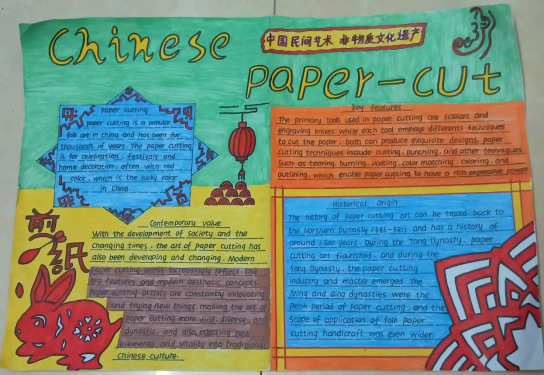 Chinese
中国民间艺术 非物质文化遗产
PAPER-CUT
paper cutting
paper cutting is a popular
folk art in China and has been for
thousands of years. The paper cutting
is for celebration, festivals and
home decoration, often with red
color, which is the lucky color
in China.
key features
The primary tools used in paper cutting are scissors and
engraving knives while each tool employs differents techniques
to cut the paper, both can produce exquisite designs, paper
cutting techniques include cutting, punching, and other techniques
such as tearing, burning, pasting, color matching, coloring, and
outlining, which enable paper cutting to have a rich expressive power
剪
纸
Contemporary value
With the development of society and the
changing times, the art of paper cutting has
also been developing and changing. Modern
paper cutting works increasingly reflect the
era features and modern aesthetic concepts.
Paper cutting artists are constantly innovating
and trying new things, making the art of
paper cutting more vivid, diverse, and
dynamic, and also injecting new
elements and vitality into traditional
Chinese culture.
Historical origin
The history of paper cutting art can be traced back to
the Northern Dynasty and has a history of
around 1,500 years. During the Tang Dynasty, paper
cutting art flourished, and during the
Song Dynasty, the paper cutting
industry and master emerged. The
Ming and Qing dynasties were the
peak period of paper cutting, and the
scope of application of folk paper
cutting handicraft was even wider.